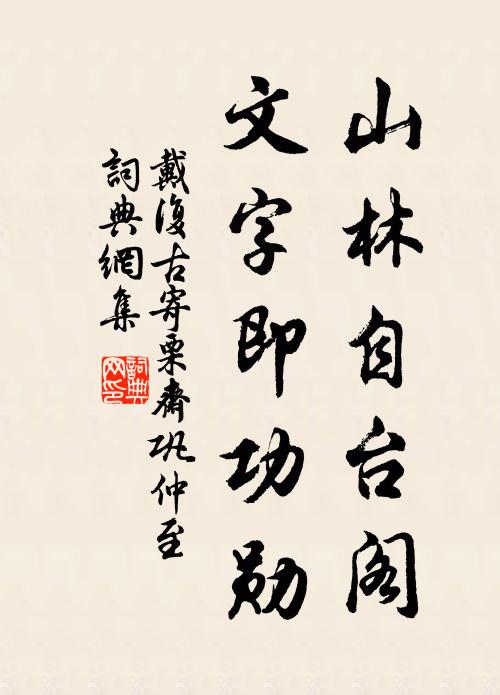 山林自台阁
文字即功勋
戴復古寄栗齋巩仲至
詞典網集
詞典网印